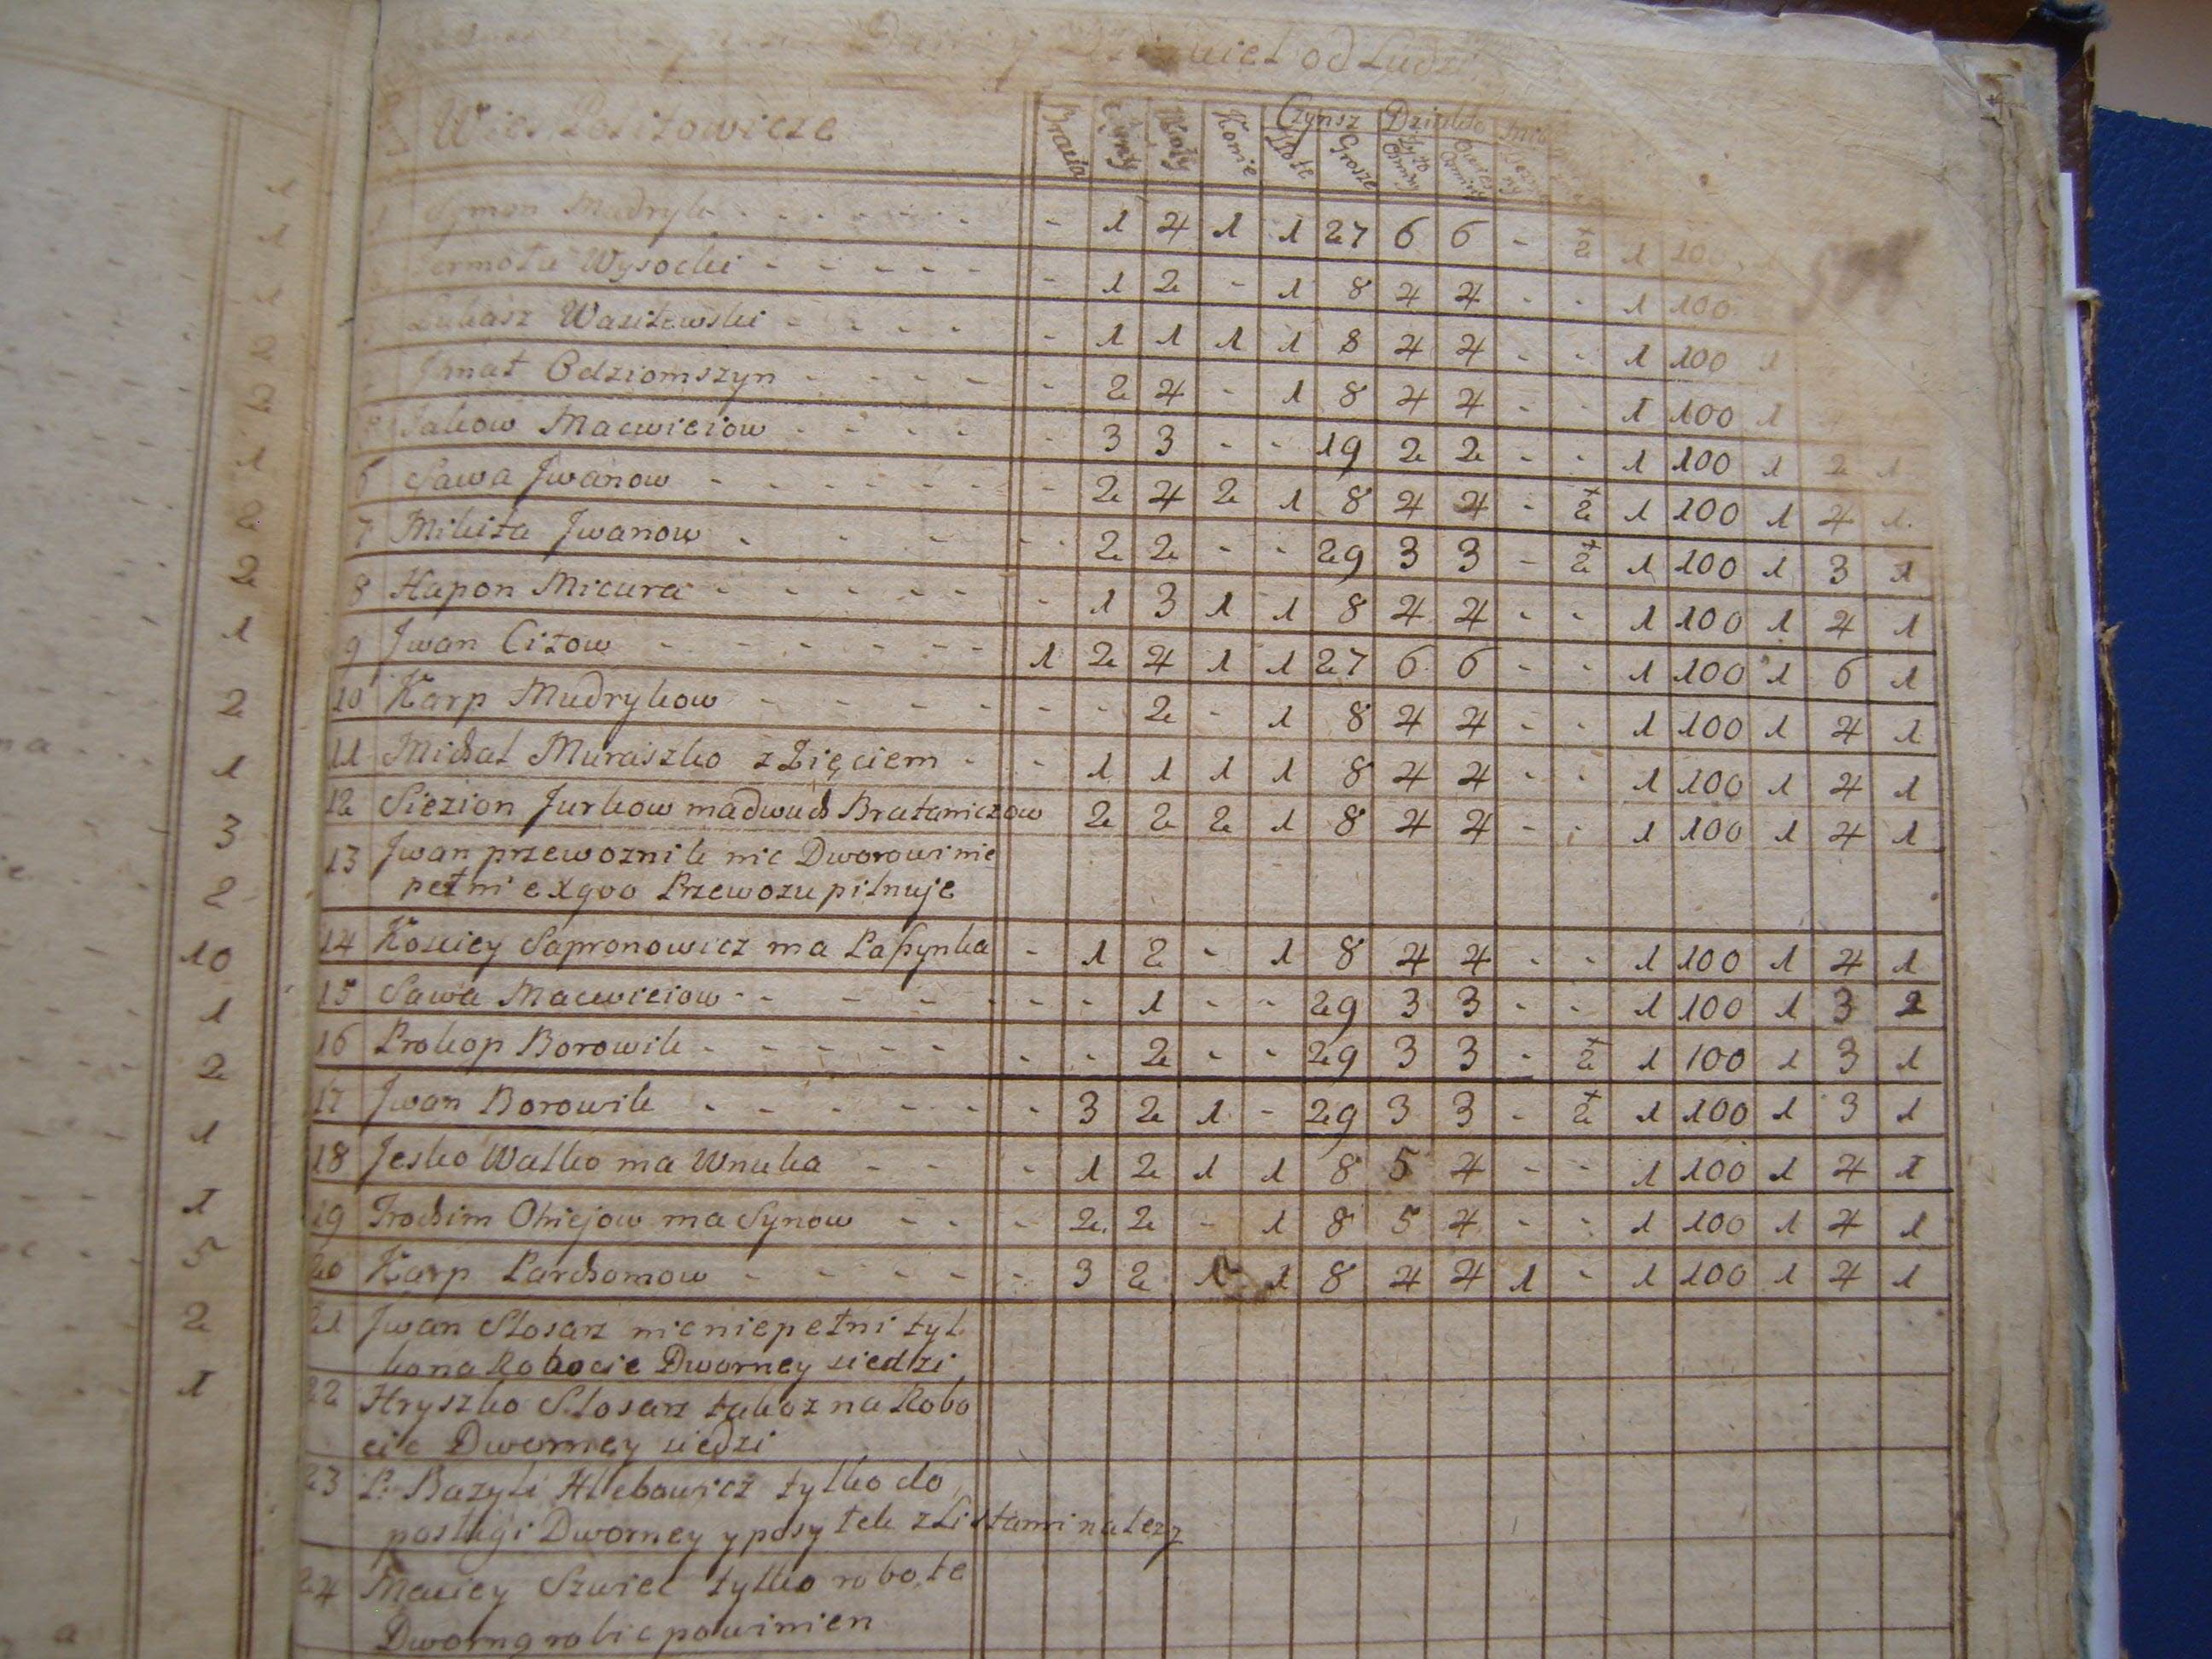 od Ludzi
Wieś
Bracia Synowie Woły Konie Czynsz Złote Grosze Działo Żyto Osminy Owies Osminy
1 Symon Mudryk - 1 4 1 1 27 6 6 - 2 1 100
Jermoła Wysocki - 1 2 - 1 8 4 4 - - 1 100
Łukasz Wasilewski - 1 1 1 1 8 4 4 - - 1 100 1
Jhnat Odziomszyn - 2 4 - 1 8 4 4 - - 1 100 1
Jakow Macwieiow - 3 3 - - 19 2 2 - - 1 100 1 2 1
6 Sawa Jwanow - 2 4 2 1 8 4 4 - 2 1 100 1 4 1
7 Mikita Jwanow - 2 2 - - 29 3 3 - 2 1 100 1 3 1
8 Hapon Micura - 1 3 1 1 8 4 4 - - 1 100 1 4 1
9 Jwan Citow 1 2 4 1 1 27 6 6 - - 1 100 1 6 1
10 Karp Mudrykow - - 2 - 1 8 4 4 - - 1 100 1 4 1
11 Michał Muraszko z Zięciem - 1 1 1 1 8 4 4 - - 1 100 1 4 1
12 Siezion Jurkow ma dwuch Brataniczow 2 2 2 1 8 4 4 - - 1 100 1 4 1
13 Jwan przewoznik nic Dworowi nie
pełni exqvo Przewozu pilnuje
14 Kosciey Sapronowicz ma Paßynka - 1 2 - 1 8 4 4 - - 1 100 1 4 1
15 Sawa Macwieiow - - 1 - - 29 3 3 - - 1 100 1 3 1
16 Prokop Borowik - - 2 - - 29 3 3 - 2 1 100 1 3 1
17 Jwan Borowik - 3 2 1 - 29 3 3 - 2 1 100 1 3 1
18 Jesko Walko ma Wnuka - 1 2 1 1 8 5 4 - - 1 100 1 4 1
19 Trochim Ohiejow ma Synow - 2 2 - 1 8 5 4 - - 1 100 1 4 1
20 Karp Parchomow - 3 2 1 1 8 4 4 1 - 1 100 1 4 1
21 Jwan Slosarz nic niepełni tyl
ko na Robocie Dworney siedzi
22 Hryszko Slosarz takoz na Robo
cie Dworney siedzi
23 P. Bazyli Hlebowicz tylko do
posługi Dworney y posyłek z Listami nalezy
24 Maciey Szwiec tylko robote
Dworną robic powinien
1
1
1
1
2
2
1
2
2
1
2
1
3
2
10
1
2
1
1
5
2
1